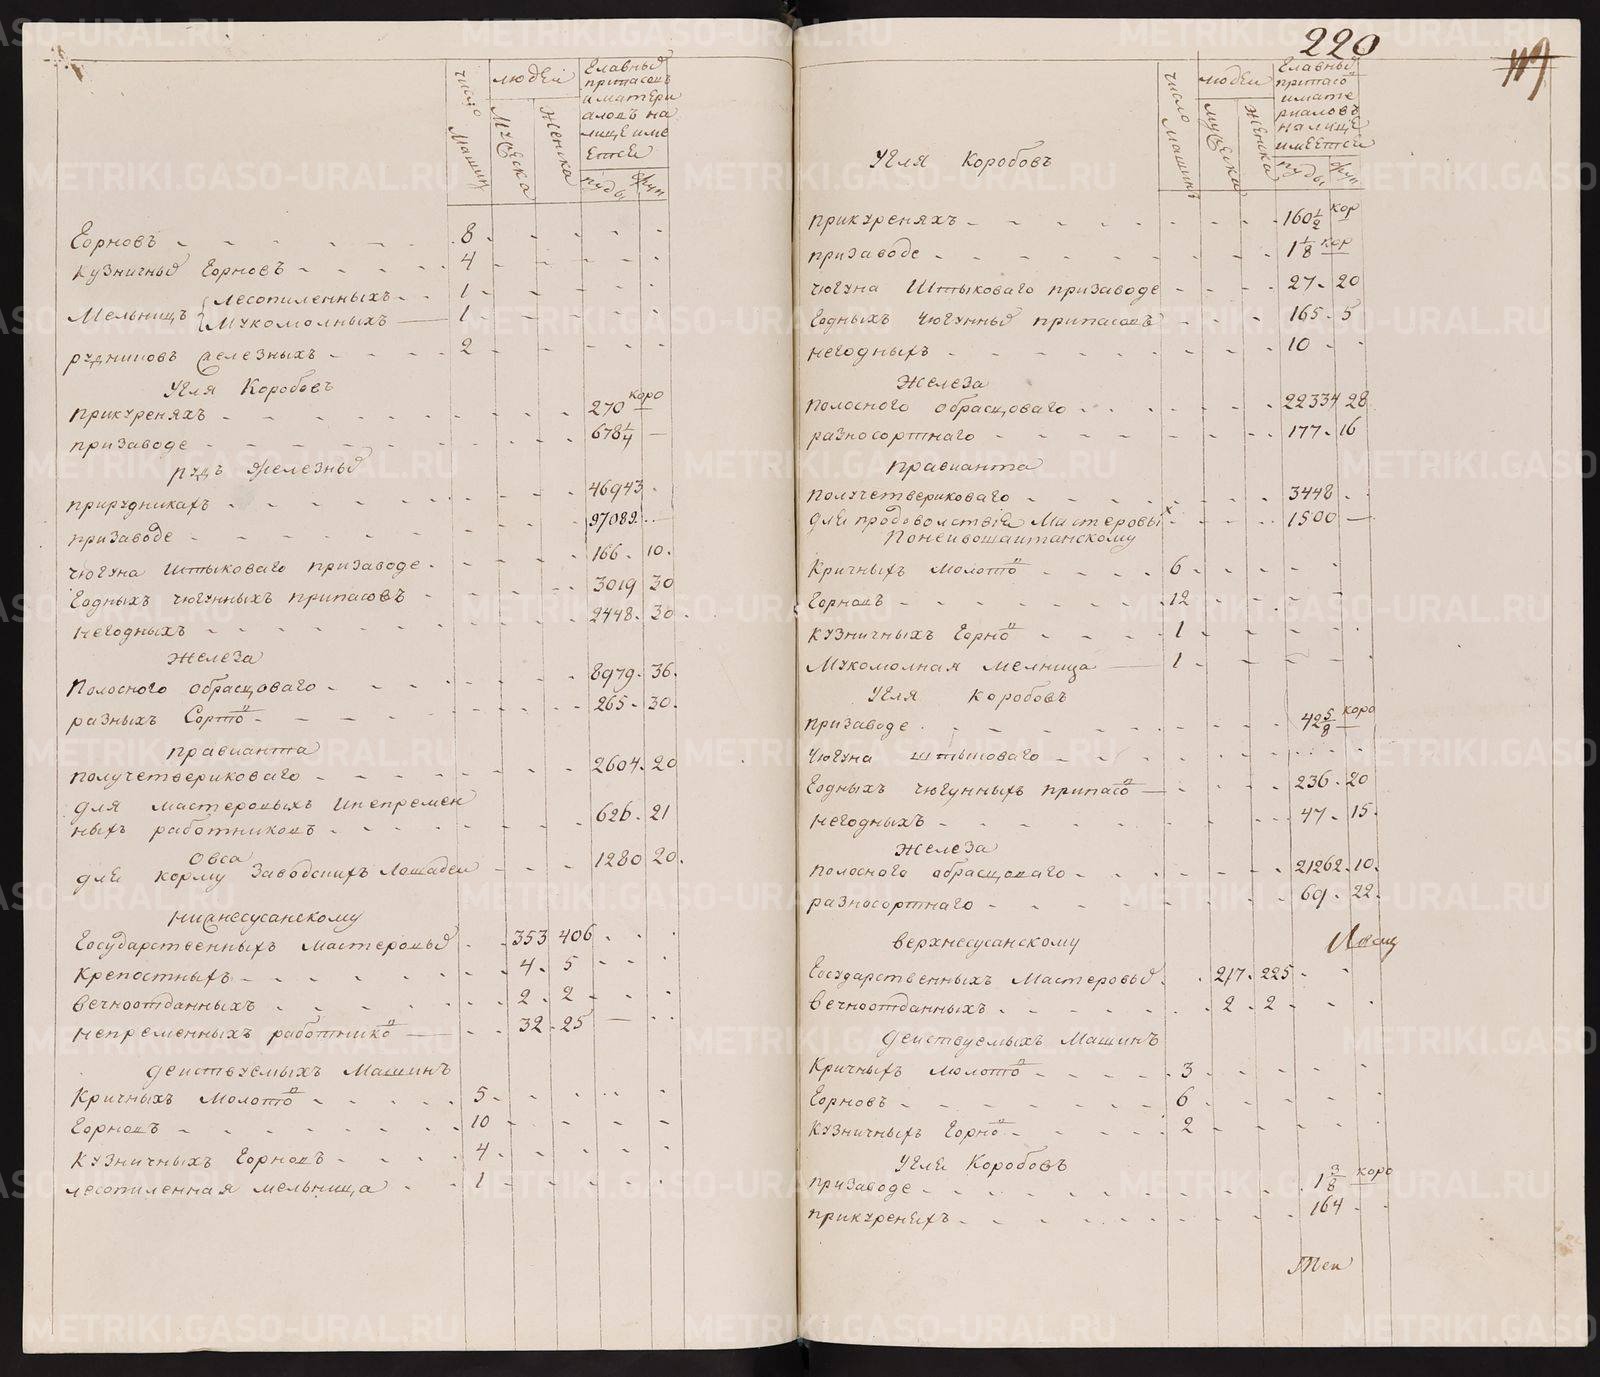 число машинъ
людей
мужеска
женска
главныхъ припасовъ и материаловъ на лице имеется
пуды фун
горновъ 8
кузничныхъ горновъ 4
мельницъ { лесопиленныхъ 1
мукомолныхъ 1
рудниковъ железныхъ 2
угля коробовъ
прикуреняхъ 270 коро
призаводе 678 1/4
рудъ железныхъ
прирудникахъ 46943
призаводе 97089
чюгуна штыковаго призаводе 166 10
годныхъ чюгунныхъ припасовъ 3019 30
негодныхъ 2448 30
железа
полосного обрасцоваго 8979 36
разныхъ сорто въ 265 30
правианта
получетвериковаго 2604 20
для мастеровыхъ инепремен
ныхъ работниковъ 626 21
овса
для корму заводскихъ лошадеи 1280 20
нижнесусанскому
государственныхъ мастеровыхъ 353 406
крепостныхъ 4 5
вечноотданныхъ 2 2
непременныхъ работнико въ 32 25
действуемыхъ машинъ
кричныхъ молото въ 5
горновъ 10
кузничныхъ горновъ 4
лесопиленная мельница 1
220
число машинъ
людеи
мужеска
женска
главныхъ припасо въ и материаловъ на лице имеется
пуды фун
угля коробовъ
прикуреняхъ 160 1/2 кор
призаводе 1 1/8 кор
чюгуна штыковаго призаводе 27 20
годныхъ чюгунныхъ припасовъ 165 5
негодныхъ 10
железа
полосного обрасцоваго 22334 28
разносортнаго 177 16
правианта
получетвериковаго 3448
для продоволствия мастеровыхъ 1500
понеивошаитанскому
кричныхъ молото въ 6
горновъ 12
кузничныхъ горно въ 1
мукомолная мелница 1
угля коробовъ
призаводе 42 5/8 коро
чюгуна штыковаго
годныхъ чюгунныхъ припасо въ 236 20
негодныхъ 47 15
железа
полосного обрасцоваго 21262 10
разносортнаго 69 22
верхнесусанскому
государственныхъ мастеровыхъ 217 225
вечноотданныхъ 2 2
действуемыхъ машинъ
кричныхъ молото въ 3
горновъ 6
кузничныхъ горно въ 2
угля коробовъ
призаводе 1 3/8 коро
прикуреняхъ 164